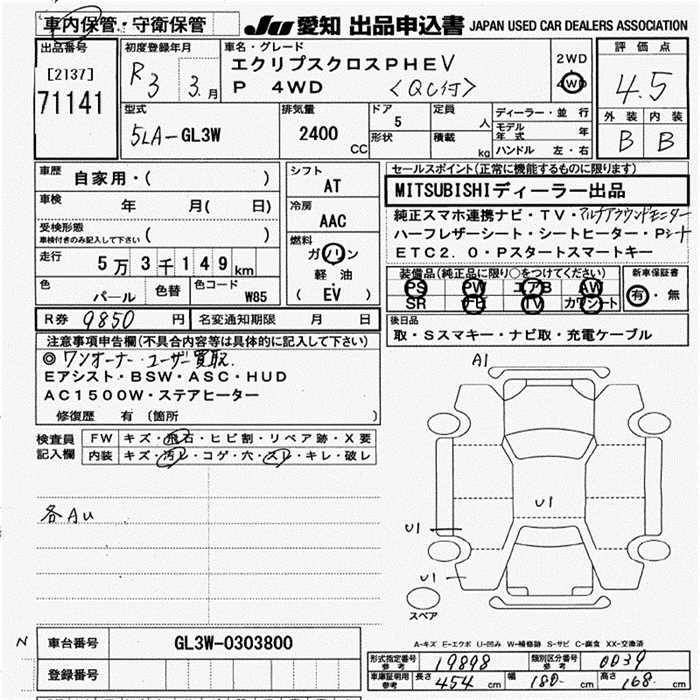 車内保管・守衛保管 JU 愛知 出品申込書 JAPAN USED CAR DEALERS ASSOCIATION
出品番号
[2137]
71141
初度登録年月
R3 3.月
車名・グレード
エクリプスクロスPHEV
P 4WD <QC付>
2WD
4WD
評価点
4.5
外装 内装
B B
型式
5LA-GL3W
排気量
2400
CC
ドア
5
形状
定員
人
積載
kg
ディーラー・並行
モデル年式 年
ハンドル 左・右
車歴
自家用・( )
車検
年 月( 日)
受検形態
車検付きのみ記入して下さい ( )
走行
5万3千149km
色
パール
色替
色コード
W85
シフト
AT
冷房
AAC
燃料
ガソリン
軽油
( EV )
セールスポイント(正常に機能するものに限ります)
MITSUBISHIディーラー出品
純正スマホ連携ナビ・TV・マルチアラウンドモニター
ハーフレザーシート・シートヒーター・Pシート
ETC2.0・Pスタートスマートキー
装備品(純正品に限り○をつけてください)
PS PW エアB AW
SR ナビ TV カワシート
新車保証書
有・無
R券 9850 円
名変通知期限 月 日
後日品
取・Sスマキー・ナビ取・充電ケーブル
注意事項申告欄(不具合内容等は具体的に記入して下さい)
◎ワンオーナー・ユーザー買取.
Eアシスト・BSW・ASC・HUD
AC1500W・ステアヒーター
修復歴 有 (箇所 )
検査員記入欄
FW キズ・飛石・ヒビ割・リペア跡・X要
内装 キズ・汚レ・コゲ・穴・スレ・キレ・破レ
各AU
A1
U1
U1
U1
スペア
A-キズ E-エクボ U-凹み W-補修跡 S-サビ C-腐食 XX-交換済
N
車台番号 GL3W-0303800
登録番号
形式指定番号 参考 19898
類別区分番号 参考 0039
車庫証明用 参考 長さ 454 cm 幅 180 cm 高さ 168 cm